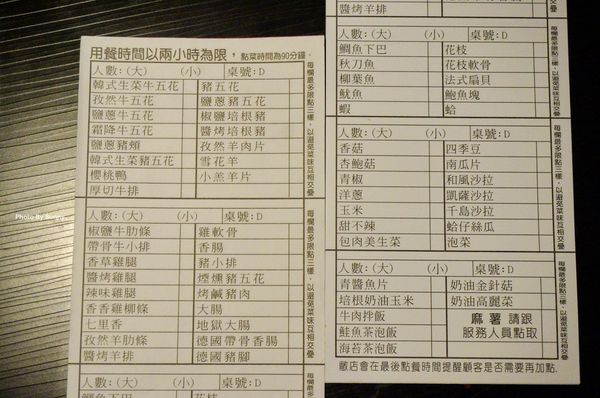 用餐時間以兩小時為限，點菜時間為90分鐘。
人數:(大) (小) 桌號:D
韓式生菜牛五花 豬五花
孜然牛五花 鹽蔥豬五花
鹽蔥牛五花 椒鹽培根豬
霜降牛五花 醬烤培根豬
鹽蔥豬頰 孜然羊肉片
韓式生菜豬五花 雪花羊
櫻桃鴨 小羔羊片
厚切牛排
每欄最多限點三樣，以避免菜味互相交疊
人數:(大) (小) 桌號:D
椒鹽牛肋條 雞軟骨
帶骨牛小排 香腸
香草雞腿 豬小排
醬烤雞腿 煙燻豬五花
辣味雞腿 烤鹹豬肉
香香雞柳條 大腸
七里香 地獄大腸
孜然羊肋條 德國帶骨香腸
醬烤羊排 德國豬腳
每欄最多限點三樣，以避免菜味互相交疊
人數:(大) (小) 桌號:D
鯛魚下巴 花枝
醬烤羊排
人數:(大) (小) 桌號:D
鯛魚下巴 花枝
秋刀魚 花枝軟骨
柳葉魚 法式扇貝
魷魚 鮑魚塊
蝦 蛤
每欄最多限點三樣，以避免菜味互相交疊
人數:(大) (小) 桌號:D
香菇 四季豆
杏鮑菇 南瓜片
青椒 和風沙拉
洋蔥 凱薩沙拉
玉米 千島沙拉
甜不辣 蛤仔絲瓜
包肉美生菜 泡菜
每欄最多限點三樣，以避免菜味互相交疊
人數:(大) (小) 桌號:D
青醬魚片 奶油金針菇
培根奶油玉米 奶油高麗菜
牛肉拌飯 麻薯 請跟
鮭魚茶泡飯 服務人員點取
海苔茶泡飯
每欄最多限點三樣，以避免菜味互相交疊
敝店會在最後點餐時間提醒顧客是否需要再加點.